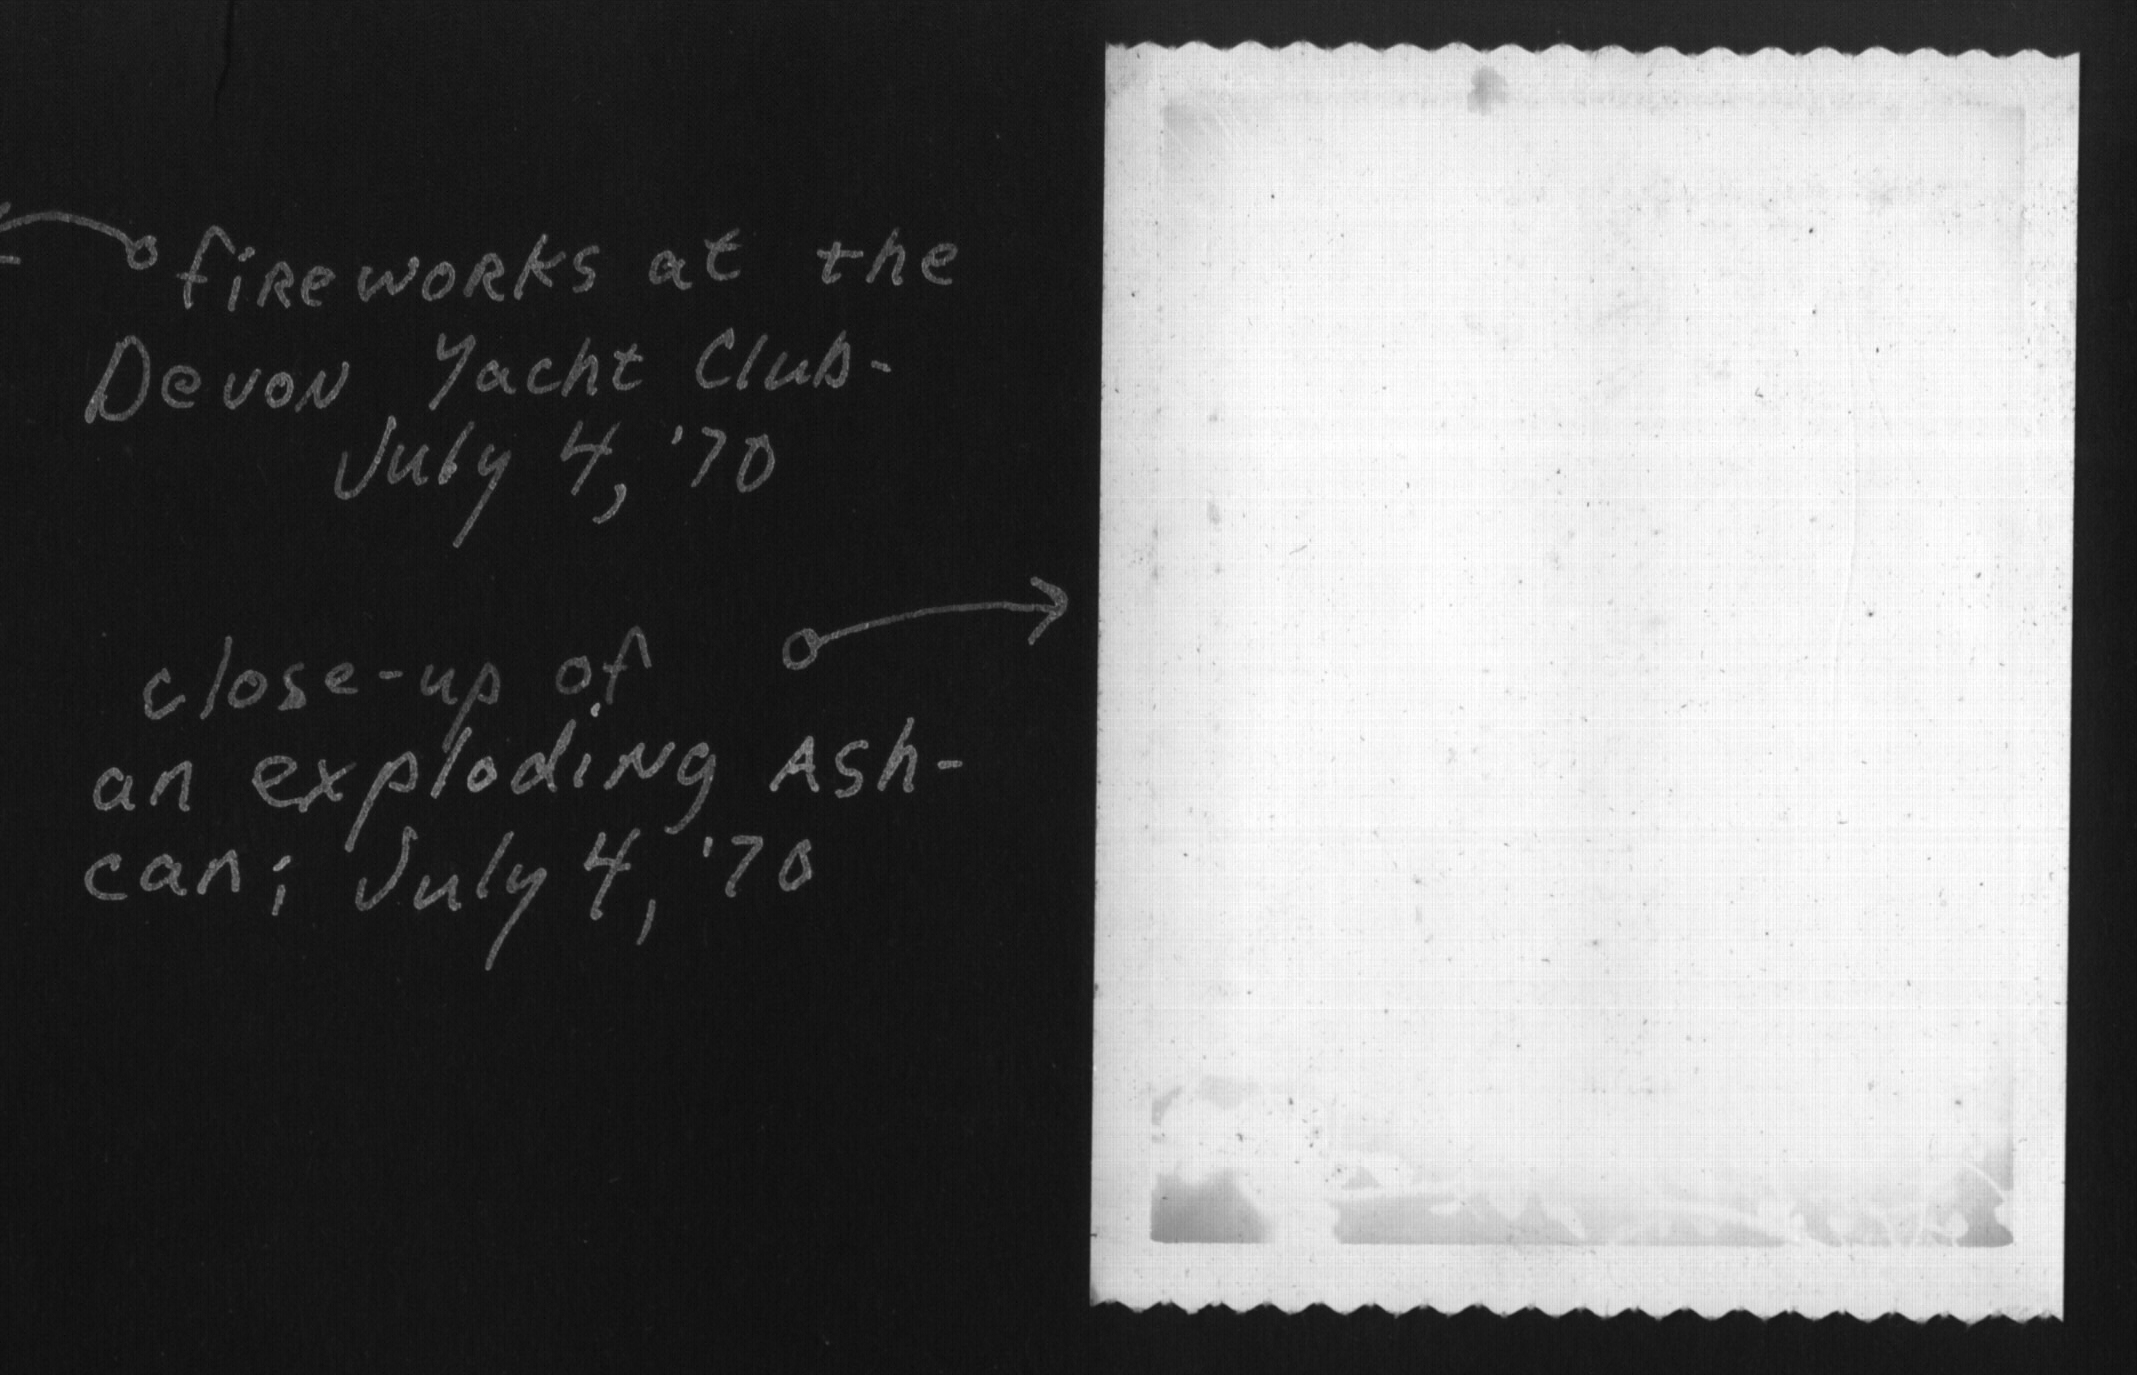 fireworks at the
Devon Yacht Club-
July 4, '70
close-up of
an exploding Ash-
can; July 4, '70